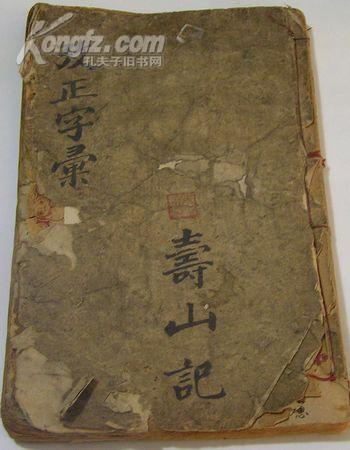 Kongfz.com
孔夫子旧书网
改正字彙
壽山記